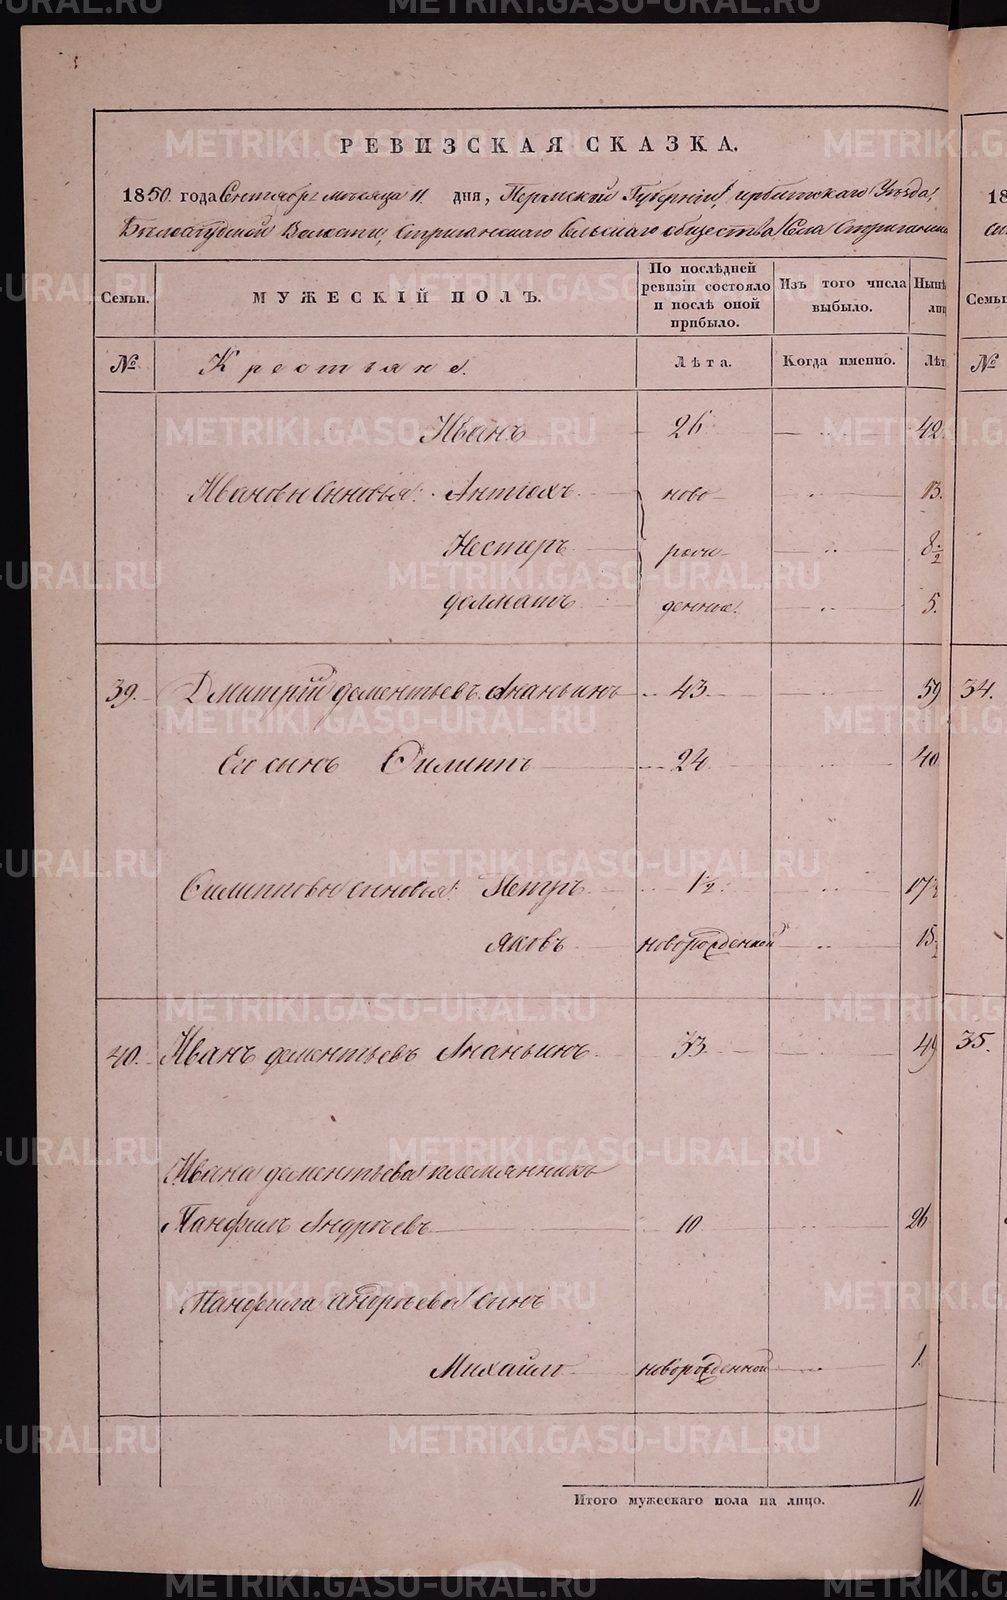 РЕВИЗСКАЯ СКАЗКА.
1850 года Сентября месяца 11 дня, Пермской Губернии, ирбитскаго Уѣзда,
Бѣлослудской Волости, Стриганскаго сельскаго общества, Села Стриганска
Семьи.
МУЖЕСКІЙ ПОЛЪ.
По послѣдней ревизіи состояло и послѣ оной прибыло.
Изъ того числа выбыло.
Нынѣ
лиц
№
Крестьяне.
Лѣта.
Когда именно.
Лѣт
Иванъ 26 42.
Ивановы сыновья: Антіохъ ново 13.
Нестеръ рож 8 1/2
делматъ денные. 5.
39. Дмитрій дементьевъ Ананьинъ 43 59
Его сынъ Филиппъ 24 40
Филипповы сыновья: Петръ 1 1/2. 17 1/2
яковъ новорожденной 15 1/2
40. Иванъ дементьевъ Ананьинъ 33 49
Ивана дементьева племянникъ
Панфилъ Андреевъ 10 26
Панфила андреева сынъ
Михайло новорожденной 1.
Итого мужескаго пола на лицо. 11.
18
Семьи
№
34.
35.
METRIKI.GASO-URAL.RU